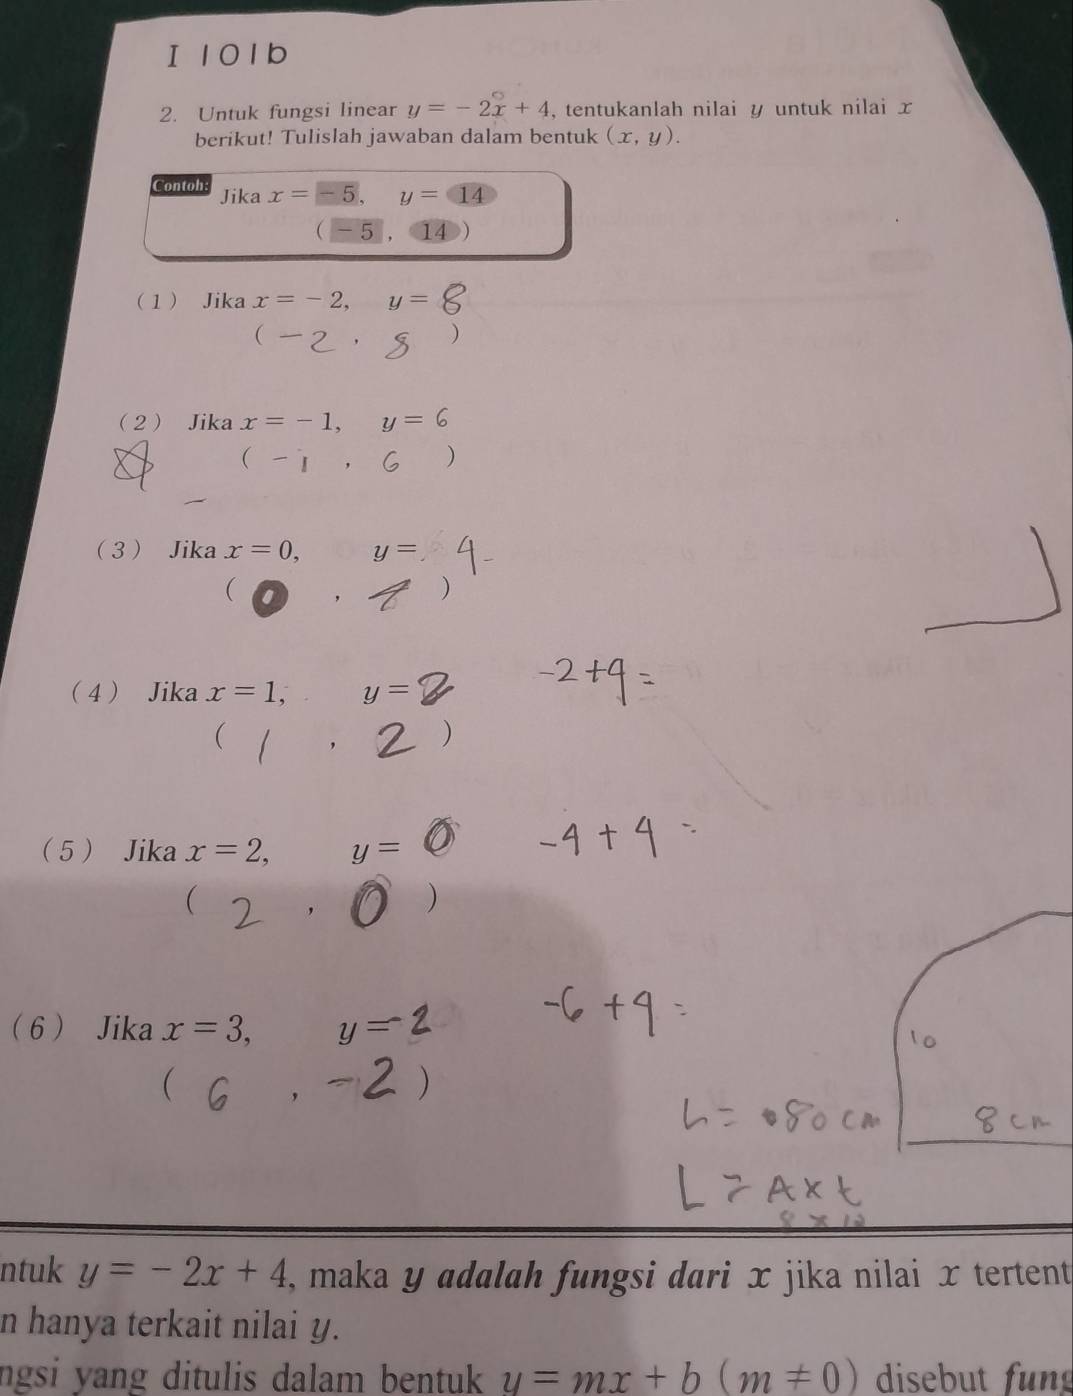 I 101b
2. Untuk fungsi linear y = - 2x + 4, tentukanlah nilai y untuk nilai x
berikut! Tulislah jawaban dalam bentuk (x, y).
Contoh: Jika x = - 5, y = 14
( - 5 , 14 )
(1) Jika x = - 2, y = 8
( -2 , 8 )
(2) Jika x = - 1, y = 6
( -1 , 6 )
(3) Jika x = 0, y = 4
( 0 , 4 )
(4) Jika x = 1, y = 2 -2 + 4 =
( 1 , 2 )
(5) Jika x = 2, y = 0 -4 + 4 =
( 2 , 0 )
(6) Jika x = 3, y = -2 -6 + 4 =
( 6 , -2 )
10
L = 80 cm 8 cm
L = A x t
8 x 10
ntuk y = - 2x + 4, maka y adalah fungsi dari x jika nilai x tertent
n hanya terkait nilai y.
ngsi yang ditulis dalam bentuk y = mx + b (m ≠ 0) disebut fung